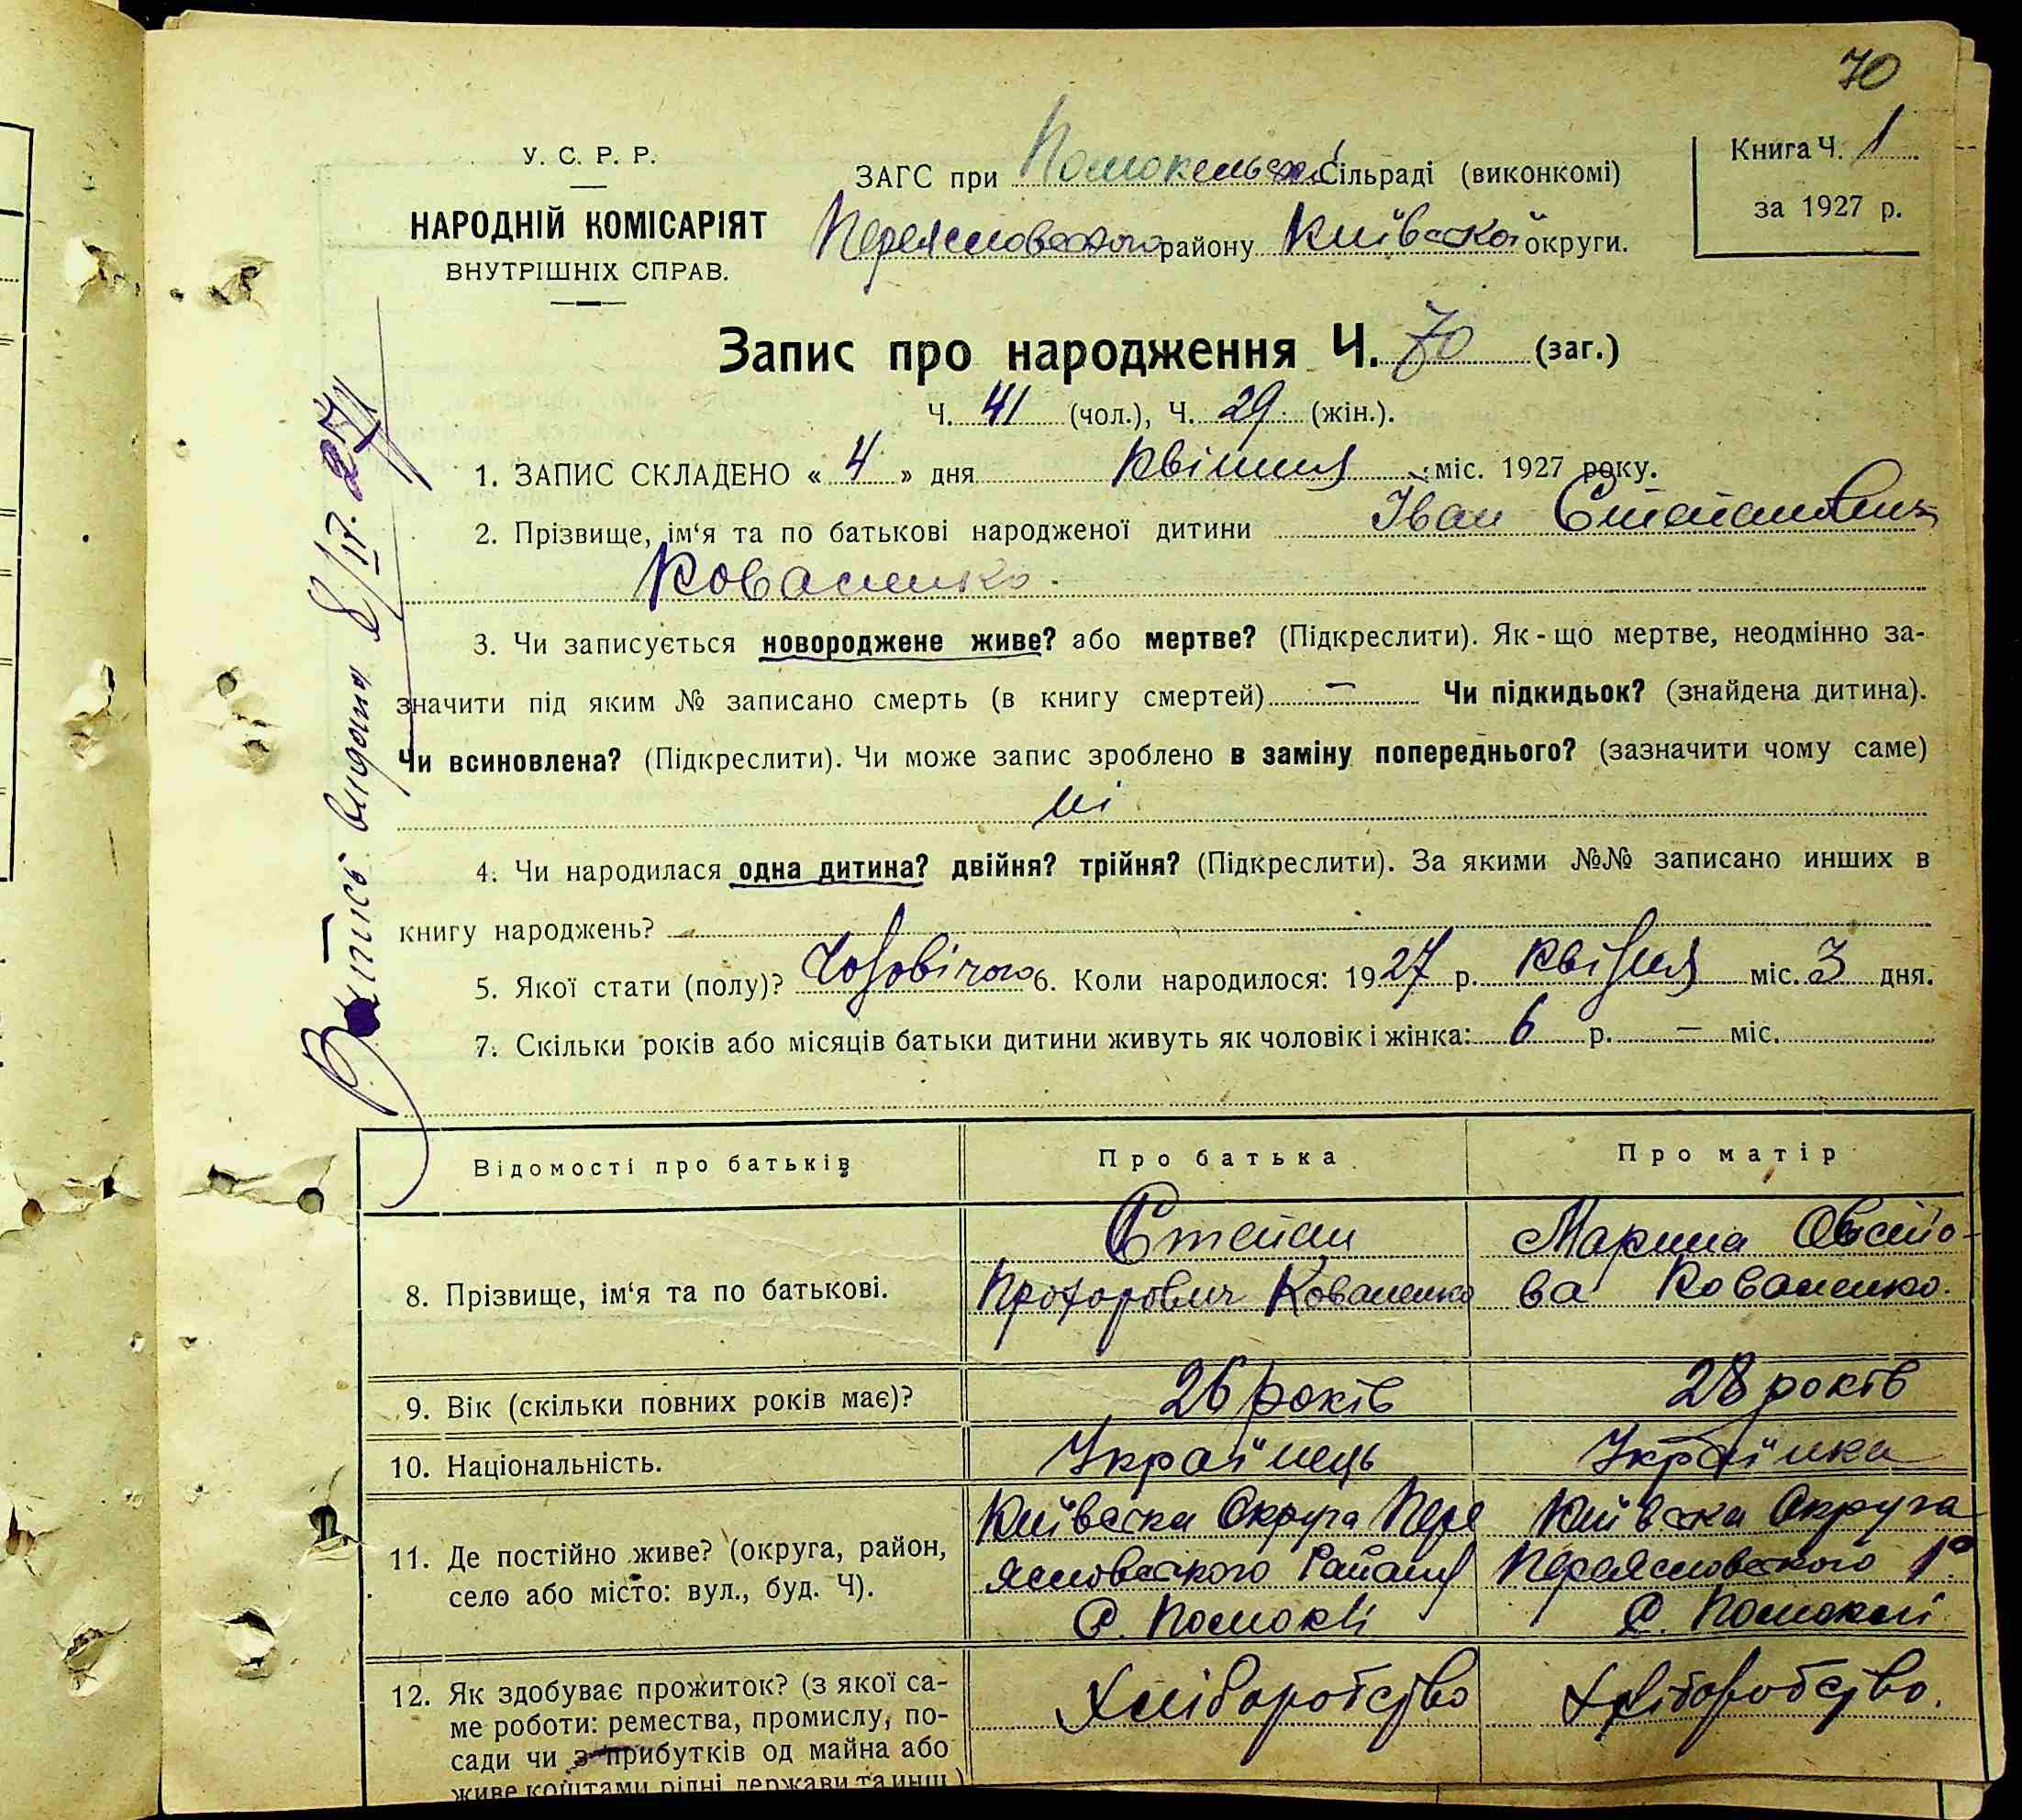 70
У. С. Р. Р.
НАРОДНІЙ КОМІСАРІЯТ
ВНУТРІШНІХ СПРАВ.
ЗАГС при Помокельській Сільраді (виконкомі)
Переясловського району Київської округи.
Книга Ч. 1
за 1927 р.
Запис про народження Ч. 70 (заг.)
Ч. 41 (чол.), Ч. 29 (жін.).
1. ЗАПИС СКЛАДЕНО « 4 » дня Квітня міс. 1927 року.
2. Прізвище, ім‘я та по батькові народженої дитини Іван Степанович
Коваленко.
3. Чи записується новороджене живе? або мертве? (Підкреслити). Як-що мертве, неодмінно за-
значити під яким № записано смерть (в книгу смертей) — Чи підкидьок? (знайдена дитина).
Чи всиновлена? (Підкреслити). Чи може запис зроблено в заміну попереднього? (зазначити чому саме)
ні
4. Чи народилася одна дитина? двійня? трійня? (Підкреслити). За якими №№ записано инших в
книгу народжень? —
5. Якої стати (полу)? Чоловічого 6. Коли народилося: 1927 р. Квітня міс. 3 дня.
7. Скільки років або місяців батьки дитини живуть як чоловік і жінка: 6 р. — міс.
Випись видана 8/IV. 27
Відомості про батьків
Про батька
Про матір
8. Прізвище, ім‘я та по батькові.
Степан
Прохорович Коваленко
Марина
ва Коваленко.
9. Вік (скільки повних років має)?
26 років
28 років
10. Національність.
Українець
Українка
11. Де постійно живе? (округа, район,
село або місто: вул., буд. Ч).
Київська Округа Пере
ясловського Району
С. Помоклі
Київська Округа
Переясловського Р.
С. Помоклі
12. Як здобуває прожиток? (з якої са-
ме роботи: ремества, промислу, по-
сади чи з прибутків од майна або
живе коштами рідні держави та инш.)
Хліборобство
Хліборобство.